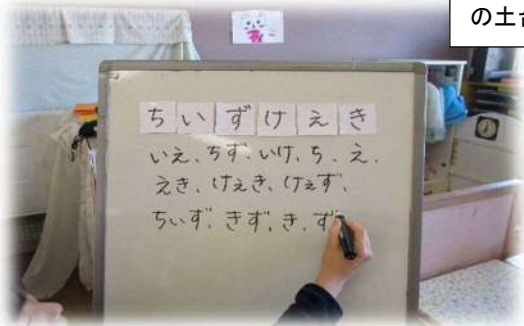 の土台
ちいずけえき
いえ、ちず、いけ、ち、え、
えき、けえき、けえず、
ちいず、きず、き、ず